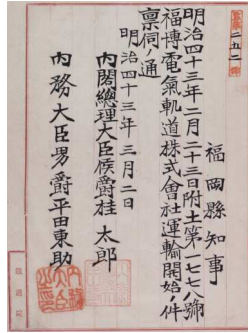 二五二
福岡縣知事
明治四十三年二月二十三日附土第一七七八號
福博電氣軌道株式會社運輸開始ノ件
稟伺ノ通
明治四十三年三月二日
内閣總理大臣侯爵桂太郎
内務大臣男爵平田東助